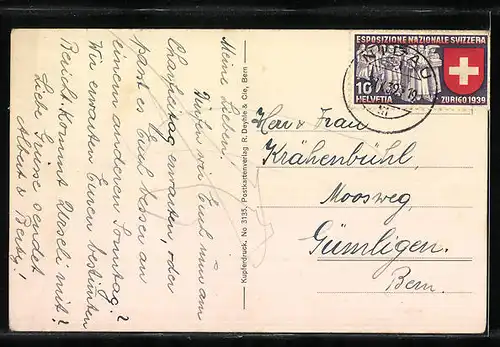 Meine Lieben!
Dürfen wir Euch nun am
Charfreitag erwarten, oder
passt es Euch besser an
einem anderen Sonntag?
Wir erwarten Euren bestimmten
Bericht. Kommt Uschi mit?
Liebe Grüsse sendet
Albert &
Kupferdruck. No 3135. Postkartenverlag R. Deyhle & Cie, Bern
ESPOSIZIONE NAZIONALE SVIZZERA
10
HELVETIA
ZURIGO 1939
Herr & Frau
Krähenbühl,
Moosweg,
Gümligen.
Bern.